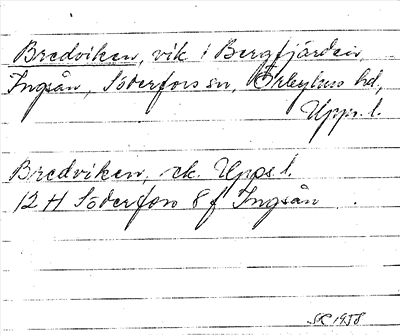 Bredviken, vik i Bergfjärden,
Ingsån, Söderfors sn, Örbyhus hd,
Upps. l.
Bredviken, ek. Upps l.
12 H Söderfors 8 f Ingsån
SK 1958